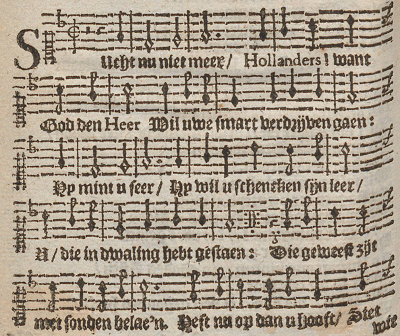 Sucht nu niet meer/ Hollanders! want
God den Heer Wil uwe smart verdrijven gaen:
Hy mint u seer/ Hy wil u schencken sijn leer/
U/ die in dwaling hebt gestaen: Die geweest zijt
met sonden belae'n. Heft nu op dan u hooft/ Stet
wie